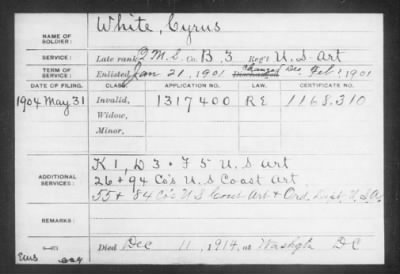 NAME OF SOLDIER: White, Cyrus
SERVICE: Late rank Q.M.S. Co. B. 3 Reg't U.S. Art
TERM OF SERVICE: Enlisted Jan 21, 1901 Discharged Feb 1, 1901
DATE OF FILING. CLASS. APPLICATION NO. LAW. CERTIFICATE NO.
1904 May 31 Invalid, 1317400 R E 1168.310
Widow,
Minor,
ADDITIONAL SERVICES: K 1, D 3 + F 5 U S Art
26 + 94 Co's U.S Coast Art
55 + 84 Co's U S Coast Art + Ord. Dept. U.S.A.
REMARKS:
Died Dec 11, 1914, at Washgtn D C